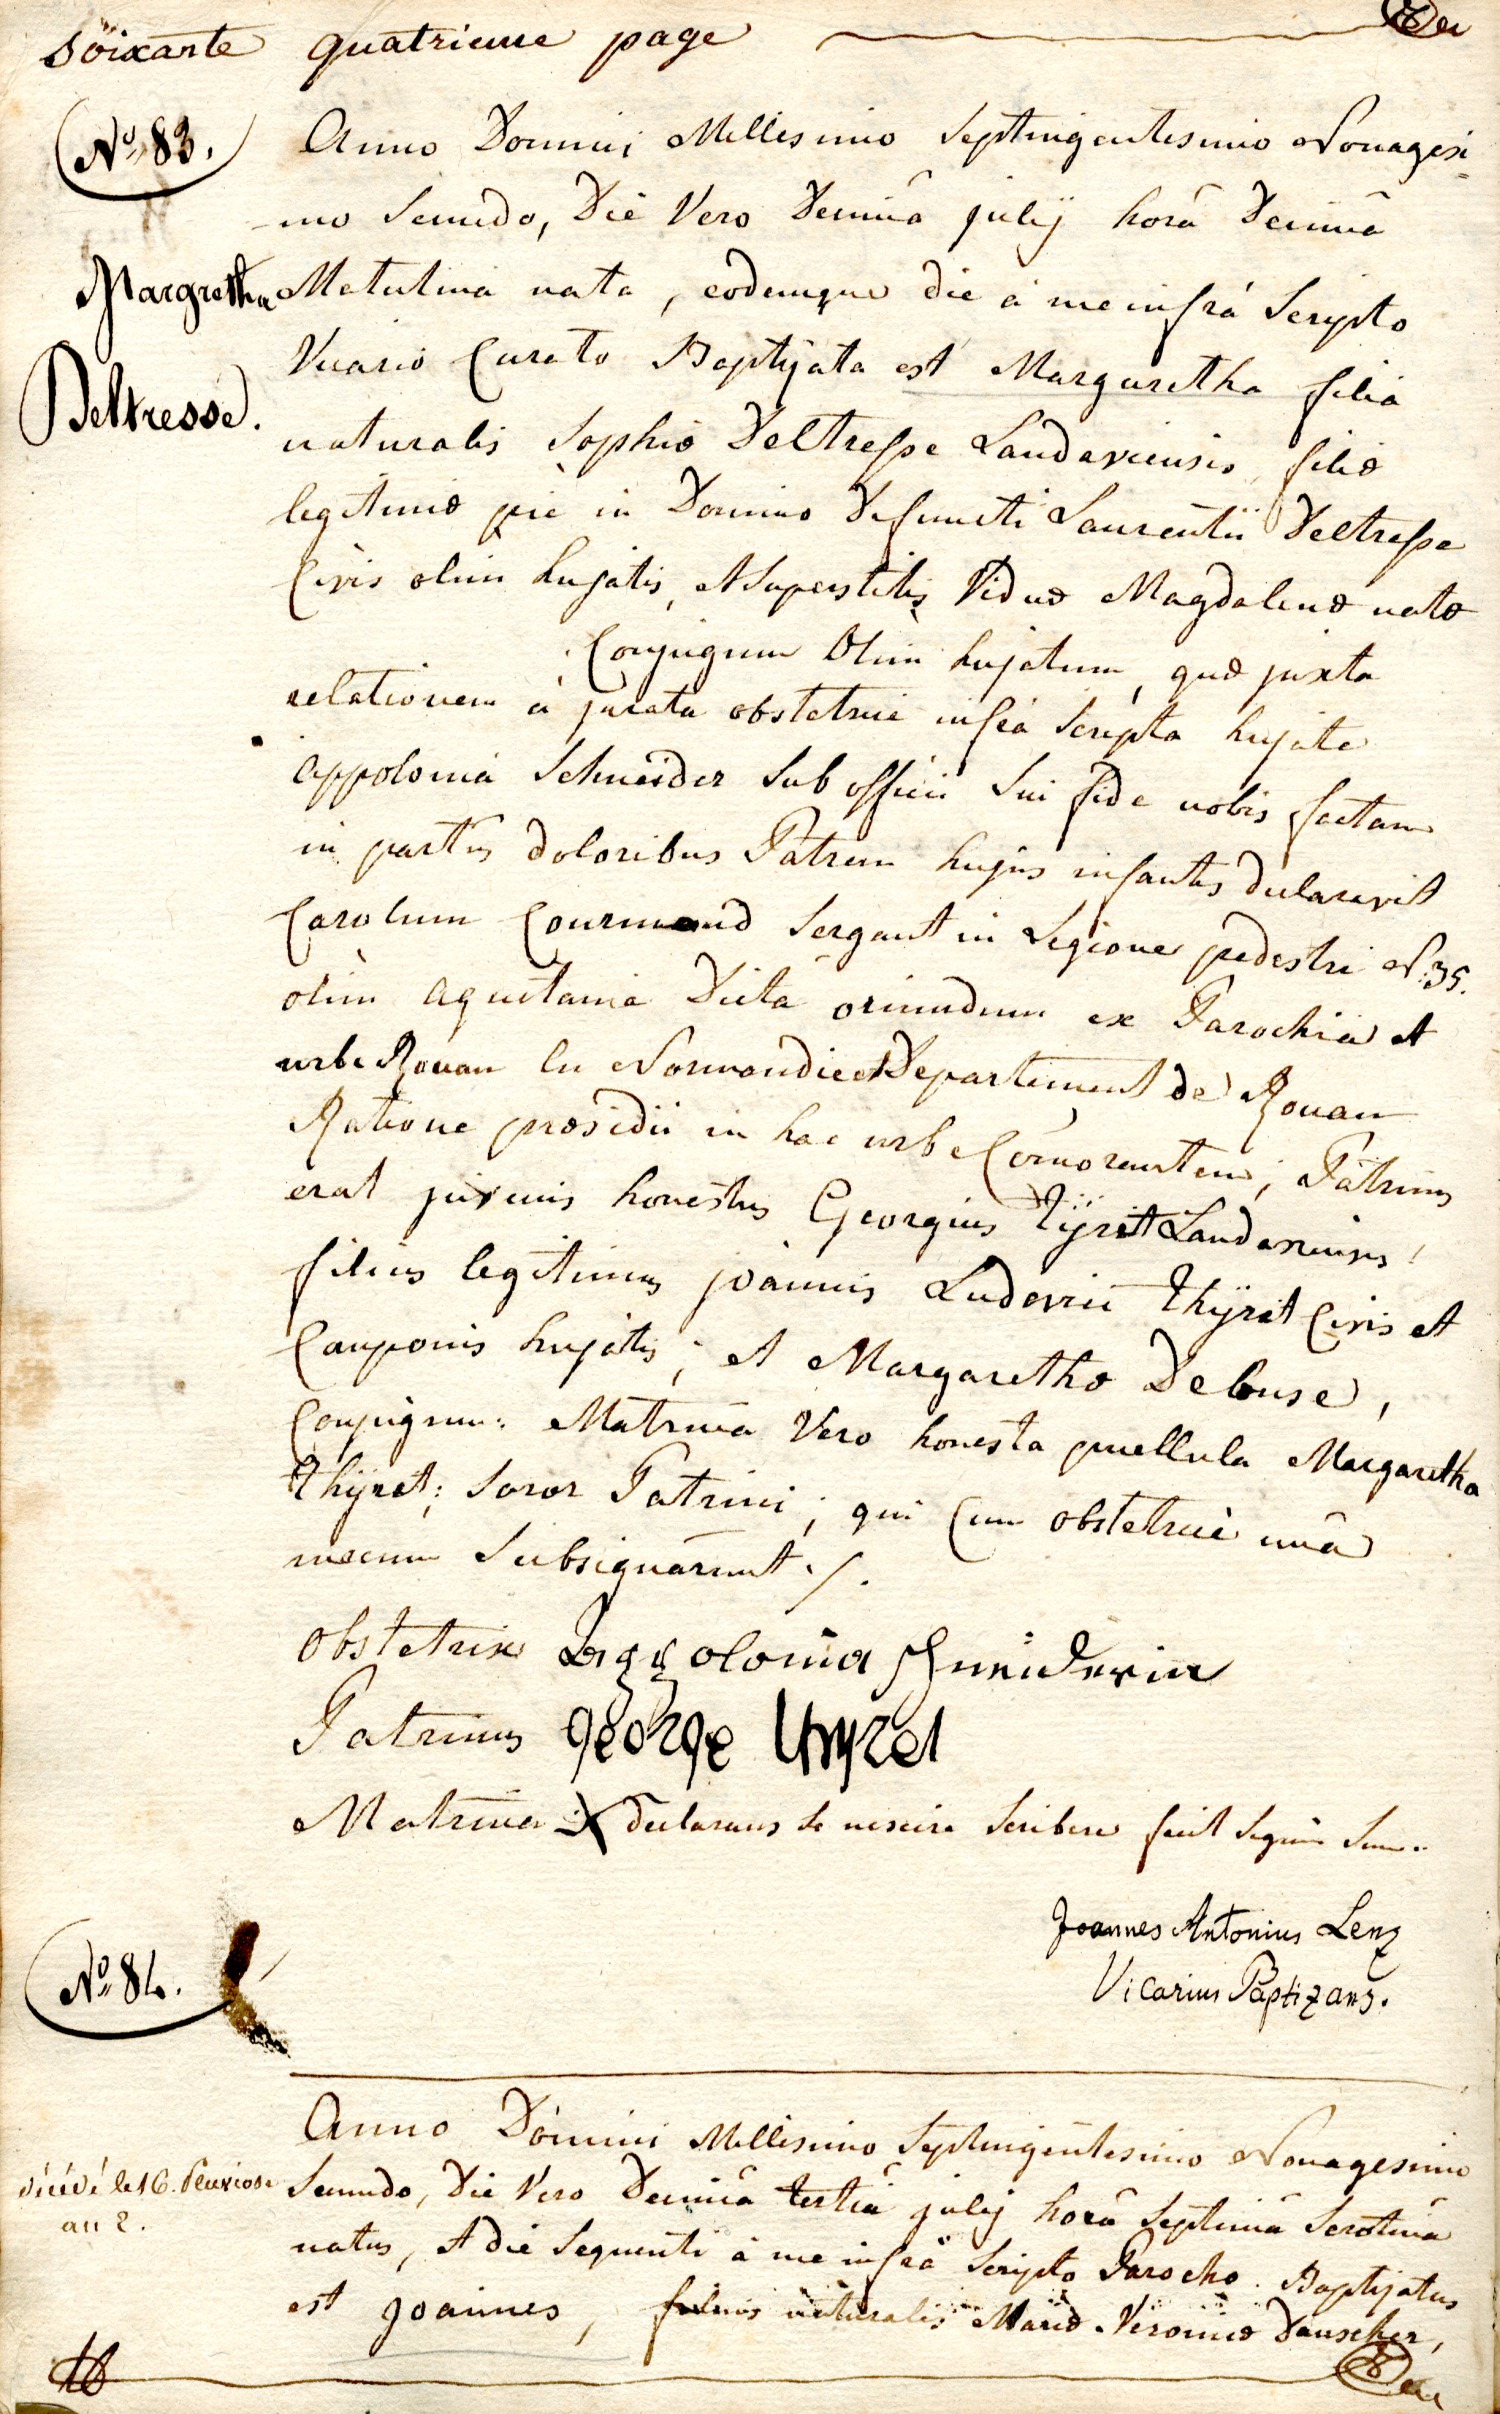 soixante quatrieme page
No. 83.
Margretha
Deltresse.
Anno Domini Millesimo Septingentesimo Nonagesi-
mo Secundo, Die Vero Decimâ julij horâ Decimâ
Matutina nata, eodemque die à me infrà Scripto
Vicario Curato Baptizata est Margaretha filia
naturalis Sophiæ Deltresse Landaviensis, filiæ
legitimæ piè in Domino Defuncti Laurentii Deltresse
Civis olim hujatis, et Superstitis Viduæ Magdalenæ natæ
Conjugum Olim hujatum, quæ juxta
relationem à jurata obstetrice infrà Scripta hujate
Appolonia Schneider Sub officii Sui fide nobis factam
in partûs doloribus Patrem hujus infantis declaravit
Carolum Courmand Sergant in Legione pedestri N. 35.
olim Aquitania Dicta oriundum ex Parochia et
urbe Rouan En Normandie et Departement de Rouan
Ratione præsidii in hac urbe Comorantem; Patrinus
erat juvenis honestus Georgius Tÿret Landaviensis,
filius legitimus joannis Ludovici Thÿret Civis et
Cauponis hujatis; et Margarethæ Debuse,
Conjugum: Matrina Vero honesta puellula Margaretha
Thÿret; Soror Patrini; qui Cum obstetrice unâ
mecum Subsignarunt ./.
Obstetrix Appolonia Schneiderin
Patrinus george thyret
Matrina X declarans se nescire scribere fecit Signum Suum.
Joannes Antonius Lenz
Vicarius Baptizans.
No. 84.
décédé le 16. Pluviose
an 2.
Anno Domini Millesimo Septingentesimo Nonagesimo
Secundo, Die Vero Decimâ tertiâ julij horâ Septimâ Serotinâ
natus, et die Sequenti à me infrà Scripto Parocho Baptizatus
est joannes, filius naturalis Mariæ Veronicæ Dauscher,